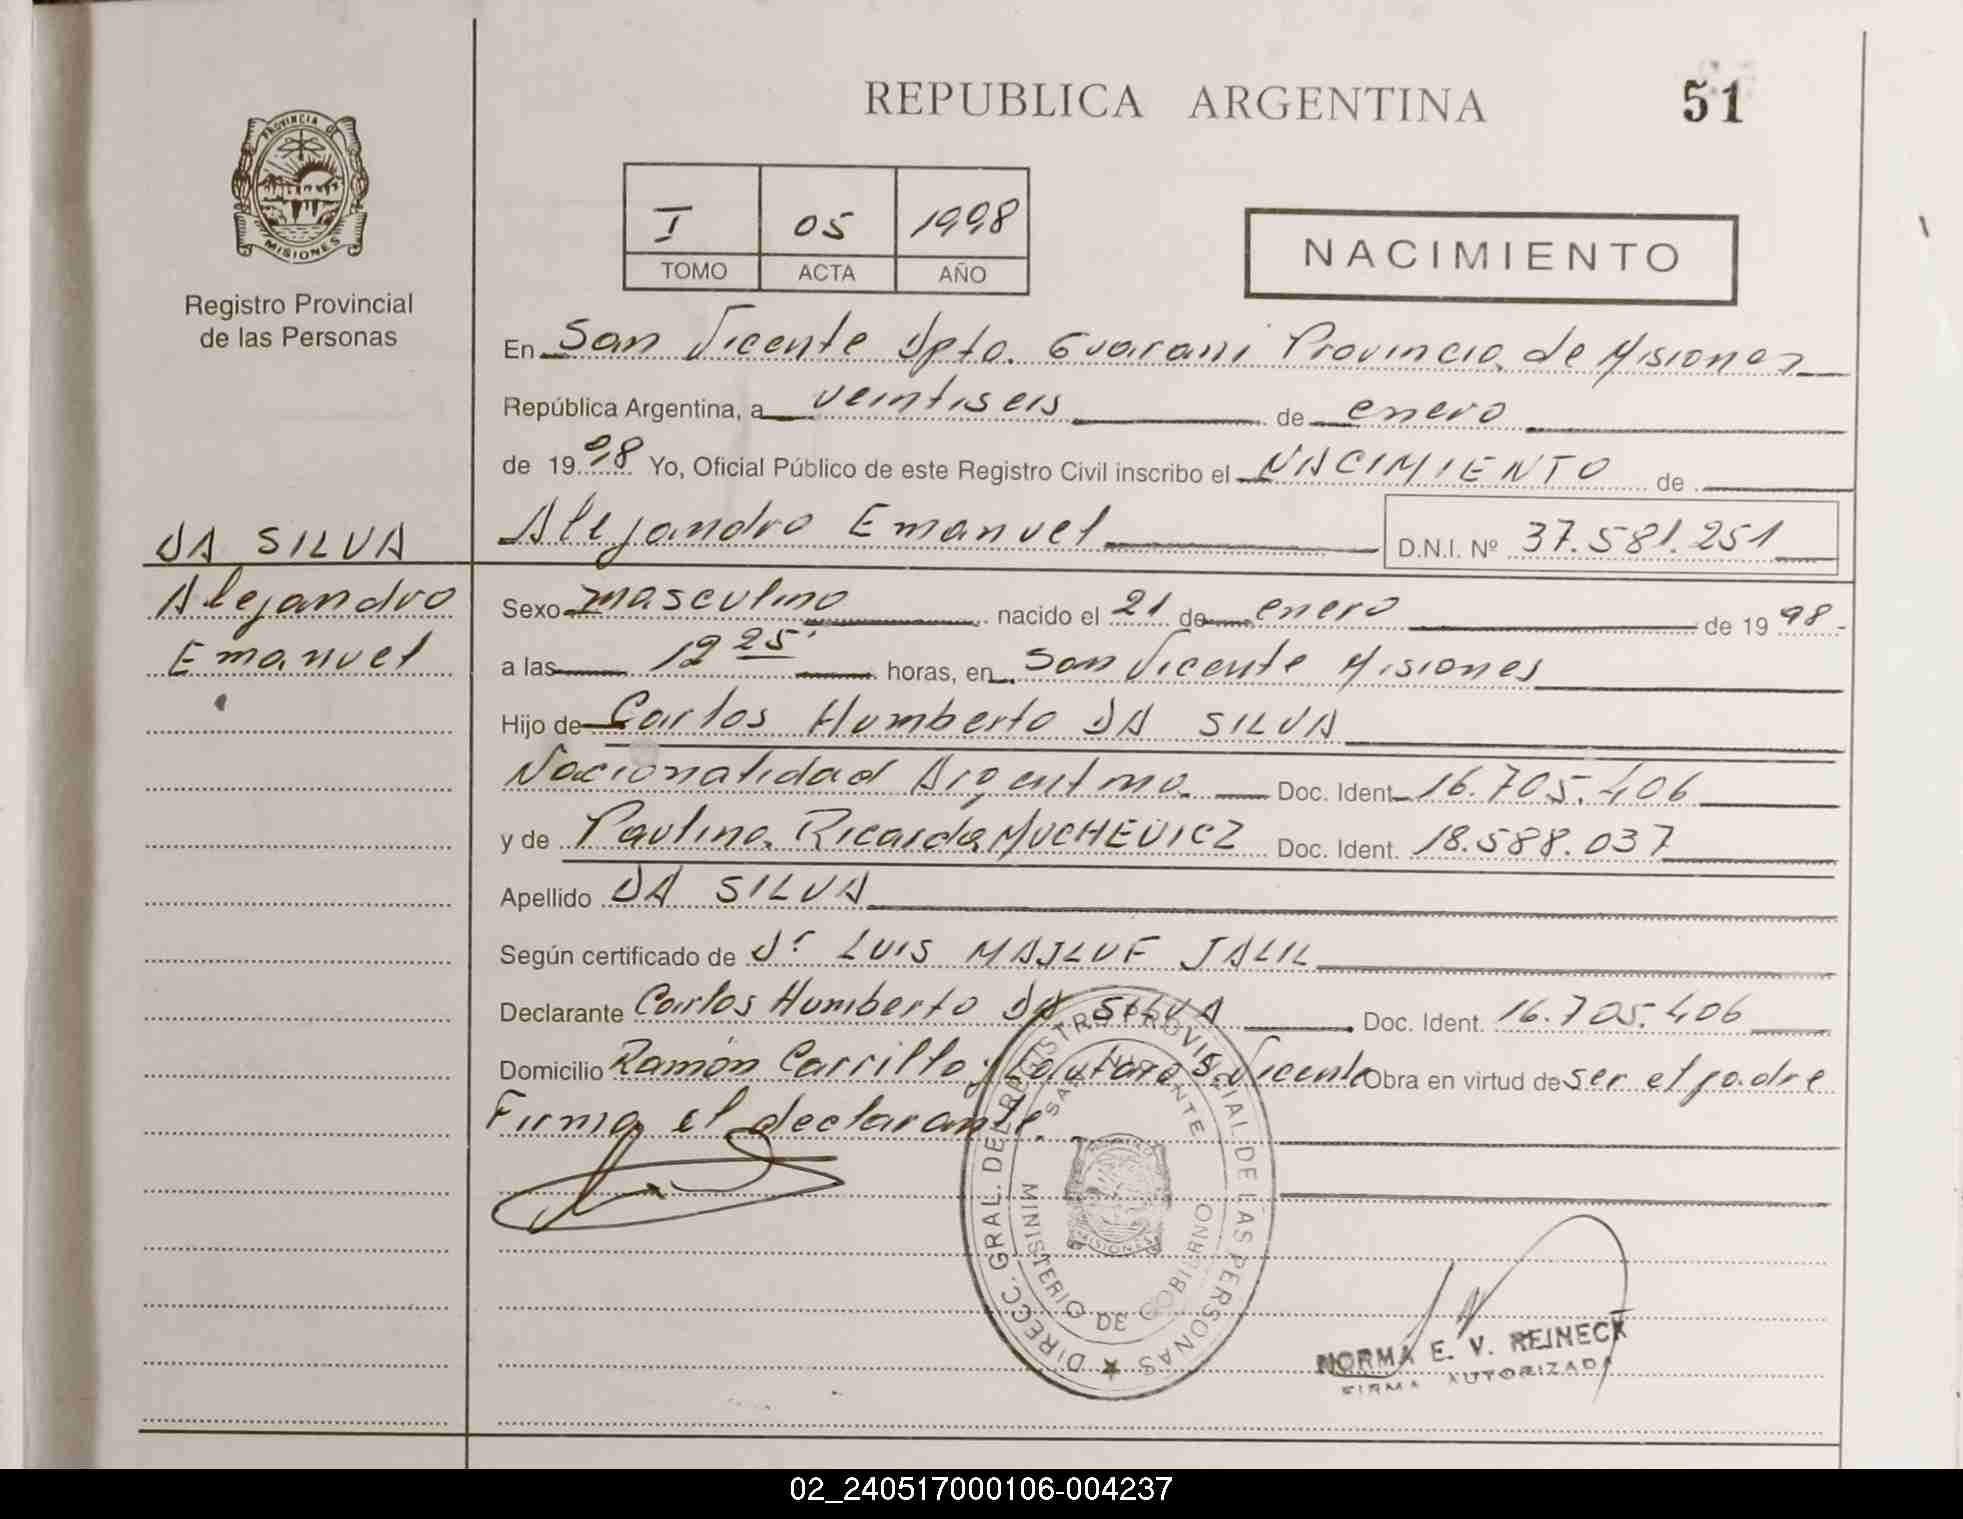 REPUBLICA ARGENTINA
51
PROVINCIA DE
MISIONES
Registro Provincial
de las Personas
I 05 1998
TOMO ACTA AÑO
NACIMIENTO
En San Vicente Dpto. Guarani Provincia de Misiones
República Argentina, a veintiseis de enero
de 1998 Yo, Oficial Público de este Registro Civil inscribo el NACIMIENTO de
DA SILVA
Alejandro
Emanuel
Alejandro Emanuel D.N.I. Nº 37.581.251
Sexo masculino nacido el 21 de enero de 1998
a las 12 25' horas, en San Vicente Misiones
Hijo de Carlos Humberto DA SILVA
Nacionalidad Argentina Doc. Ident. 16.705.406
y de Paulina Ricarda MUCHEVICZ Doc. Ident. 18.588.037
Apellido DA SILVA
Según certificado de Dr LUIS MAJLUF JALIL
Declarante Carlos Humberto DA SILVA Doc. Ident. 16.705.406
Domicilio Ramón Carrillo y Lautaro S. Vicente Obra en virtud de ser el padre
Firma el declarante.
DIRECC. GRAL. DEL REGISTRO PROVINCIAL DE LAS PERSONAS
SAN VICENTE
MINISTERIO DE GOBIERNO
MISIONES
NORMA E. V. REINECK
FIRMA AUTORIZADA
02_240517000106-004237